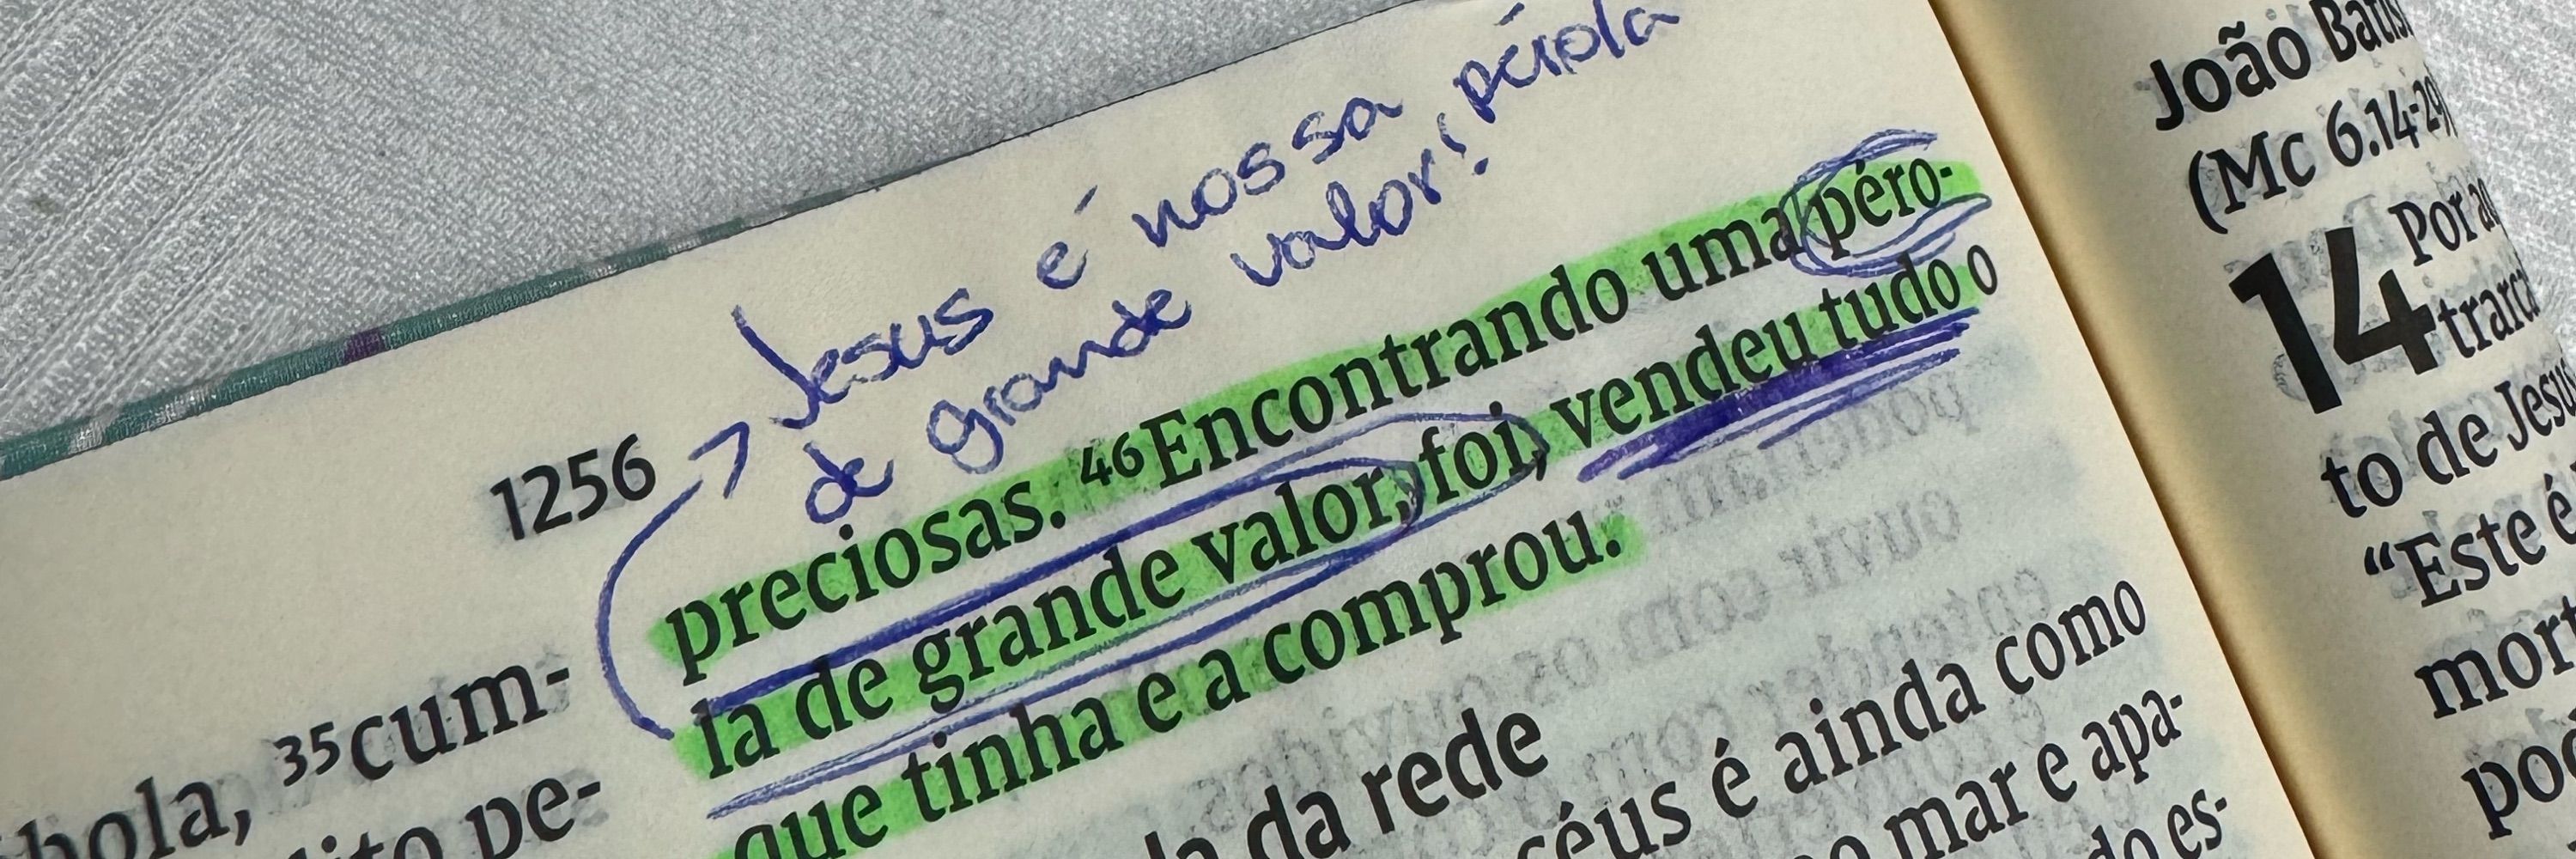 Jesus é nossa pérola
de grande valor!
1256
bola, ³⁵cum-
dito pe-
preciosas. ⁴⁶Encontrando uma péro-
la de grande valor, foi, vendeu tudo o
que tinha e a comprou.
da rede
céus é ainda como
mar e apa-
do es-
João Batis
(Mc 6.14-29)
14 Por a
trarca
to de Jesu
“Este é
mor
po